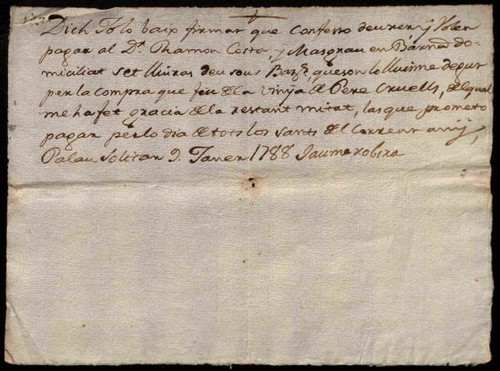 Dich Jo lo baix firmat que confesso deurer, y voler
pagar al Dr. Ramon Costa y Masgrau en Barna do-
miciliat set lliuras deu sous Barss. que son lo lluisme degut
per la compra que feu de la vinya de Pere Cruells, del qual
me ha fet gracia de la restant mitat, las que prometo
pagar per lo dia de tots los sants del corrent any,
Palau Solitar 9. Janer 1788 Jaume robira